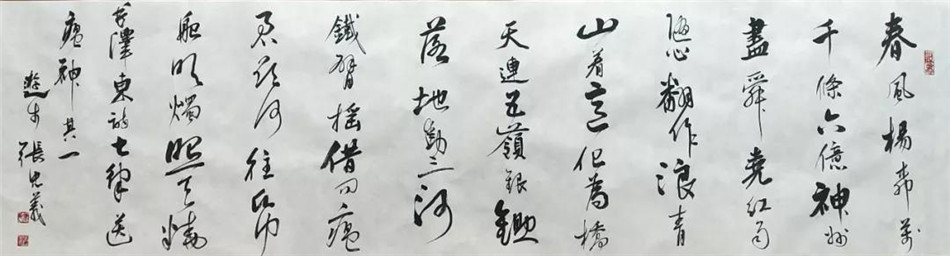 春風楊柳萬
千條六億神州
盡舜堯紅雨
隨心翻作浪青
山着意化為橋
天連五嶺銀鋤
落地動三河
鐵臂搖借問瘟
君欲何往紙
船明燭照天燒
毛澤東詩七律送
瘟神其一
張忠義